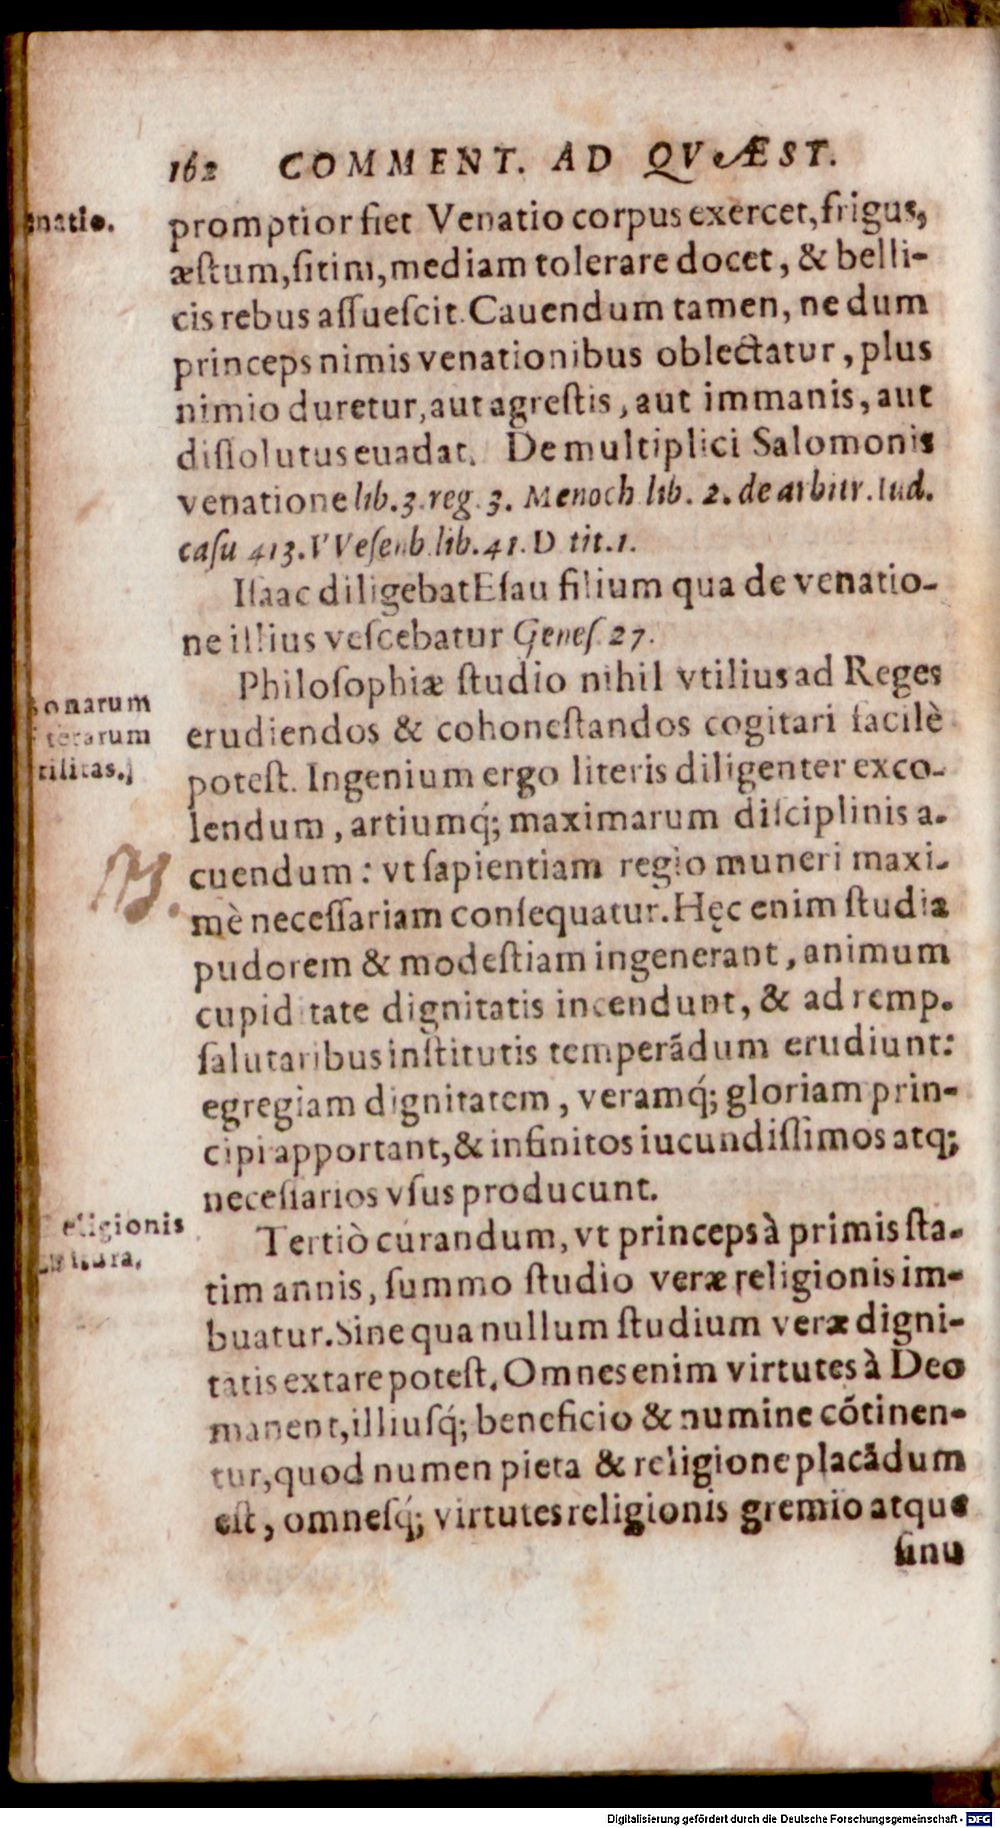 162 COMMENT. AD QVÆST.
natio.
promptior fiet Venatio corpus exercet, frigus,
æſtum, ſitim, mediam tolerare docet, & belli-
cis rebus aſſueſcit. Cauendum tamen, ne dum
princeps nimis venationibus oblectatur, plus
nimio duretur, aut agreſtis, aut immanis, aut
diſſolutus euadat. De multiplici Salomonis
venatione lib. 3. reg. 3. Menoch lib. 2. de arbitr. Iud.
caſu 413. VVeſenb lib. 41. D tit. 1.
Iſaac diligebat Eſau filium qua de venatio-
ne illius veſcebatur Geneſ. 27.
onarum
terarum
tilitas.
Philoſophiæ ſtudio nihil vtilius ad Reges
erudiendos & cohoneſtandos cogitari facilè
poteſt. Ingenium ergo literis diligenter exco-
lendum, artiumq́; maximarum diſciplinis a-
cuendum: vt ſapientiam regio muneri maxi-
mè neceſſariam conſequatur. Hęc enim ſtudia
pudorem & modeſtiam ingenerant, animum
cupiditate dignitatis incendunt, & ad remp.
ſalutaribus inſtitutis temperãdum erudiunt:
egregiam dignitatem, veramq́; gloriam prin-
cipi apportant, & infinitos iucundiſſimos atq;
neceſſarios vſus producunt.
eligionis
Tertiò curandum, vt princeps à primis ſta-
tim annis, ſummo ſtudio veræ religionis im-
buatur. Sine qua nullum ſtudium veræ digni-
tatis extare poteſt. Omnes enim virtutes à Deo
manent, illiuſq́; beneficio & numine cõtinen-
tur, quod numen pieta & religione placãdum
eſt, omneſq́; virtutes religionis gremio atque
ſinu
Digitalisierung gefördert durch die Deutsche Forschungsgemeinschaft - DFG